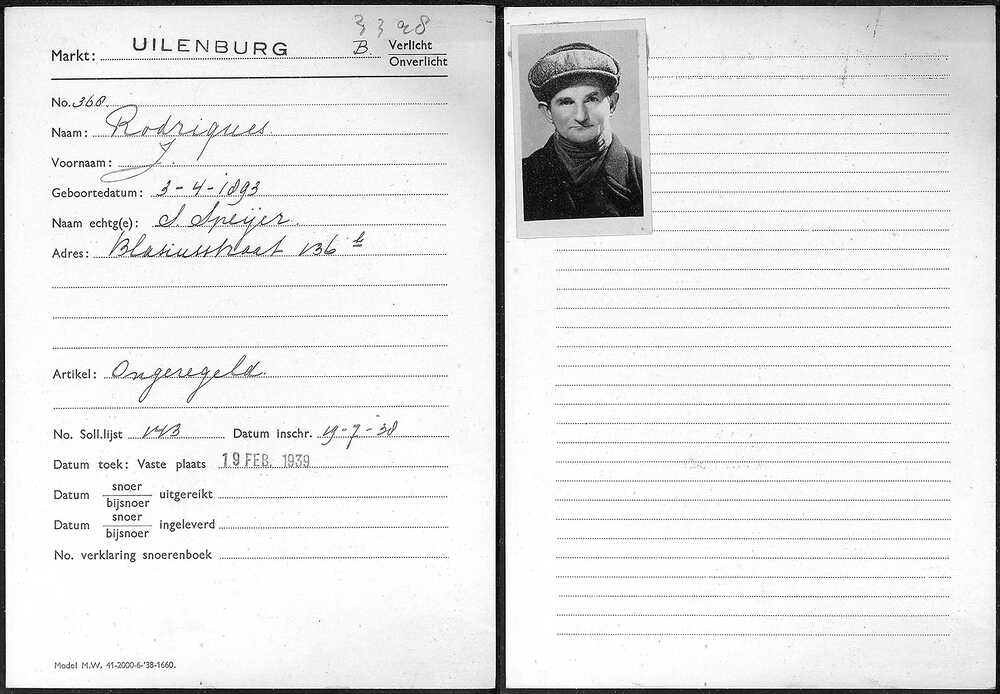 3398
Markt: UILENBURG B. Verlicht
Onverlicht
No. 368.
Naam: Rodrigues.
Voornaam: J.
Geboortedatum: 3-4-1893
Naam echtg(e): S. Speijer.
Adres: Blasiusstraat 136
Artikel: Ongeregeld.
No. Soll.lijst Datum inschr. 19-7-38
Datum toek: Vaste plaats 19 FEB. 1939
Datum snoer
bijsnoer uitgereikt
Datum snoer
bijsnoer ingeleverd
No. verklaring snoerenboek
Model M.W. 41-2000-6-'38-1660.